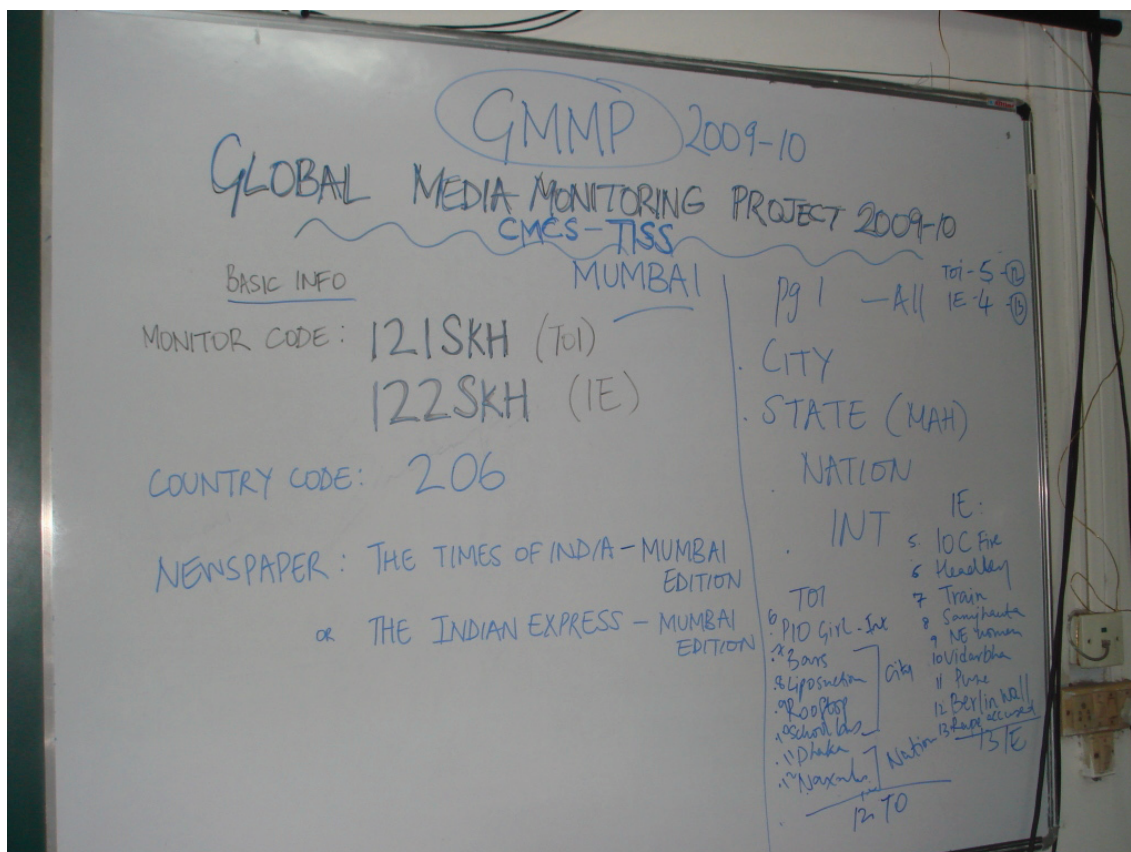 GMMP 2009-10
GLOBAL MEDIA MONITORING PROJECT 2009-10
CMCS-TISS
MUMBAI
BASIC INFO
MONITOR CODE: 121SKH (TOI)
122SKH (IE)
COUNTRY CODE: 206
NEWSPAPER: THE TIMES OF INDIA - MUMBAI
EDITION
OR THE INDIAN EXPRESS - MUMBAI
EDITION
Pg 1 - All
TOI - 5 - 12
IE - 4 - 13
. CITY
. STATE (MAH)
. NATION
. INT
TOI
6. PIO Girl - Int
Bars
8 Liposuction
9 Rooftop
School bus
City
11 Dhaka
12
Nation
12 TO
IE:
5. IOC Fire
6 Headley
7 Train
8 Samjhauta
9 NE women
10 Vidarbha
11 Pune
12 Berlin Wall
13 Rape accused
13 IE